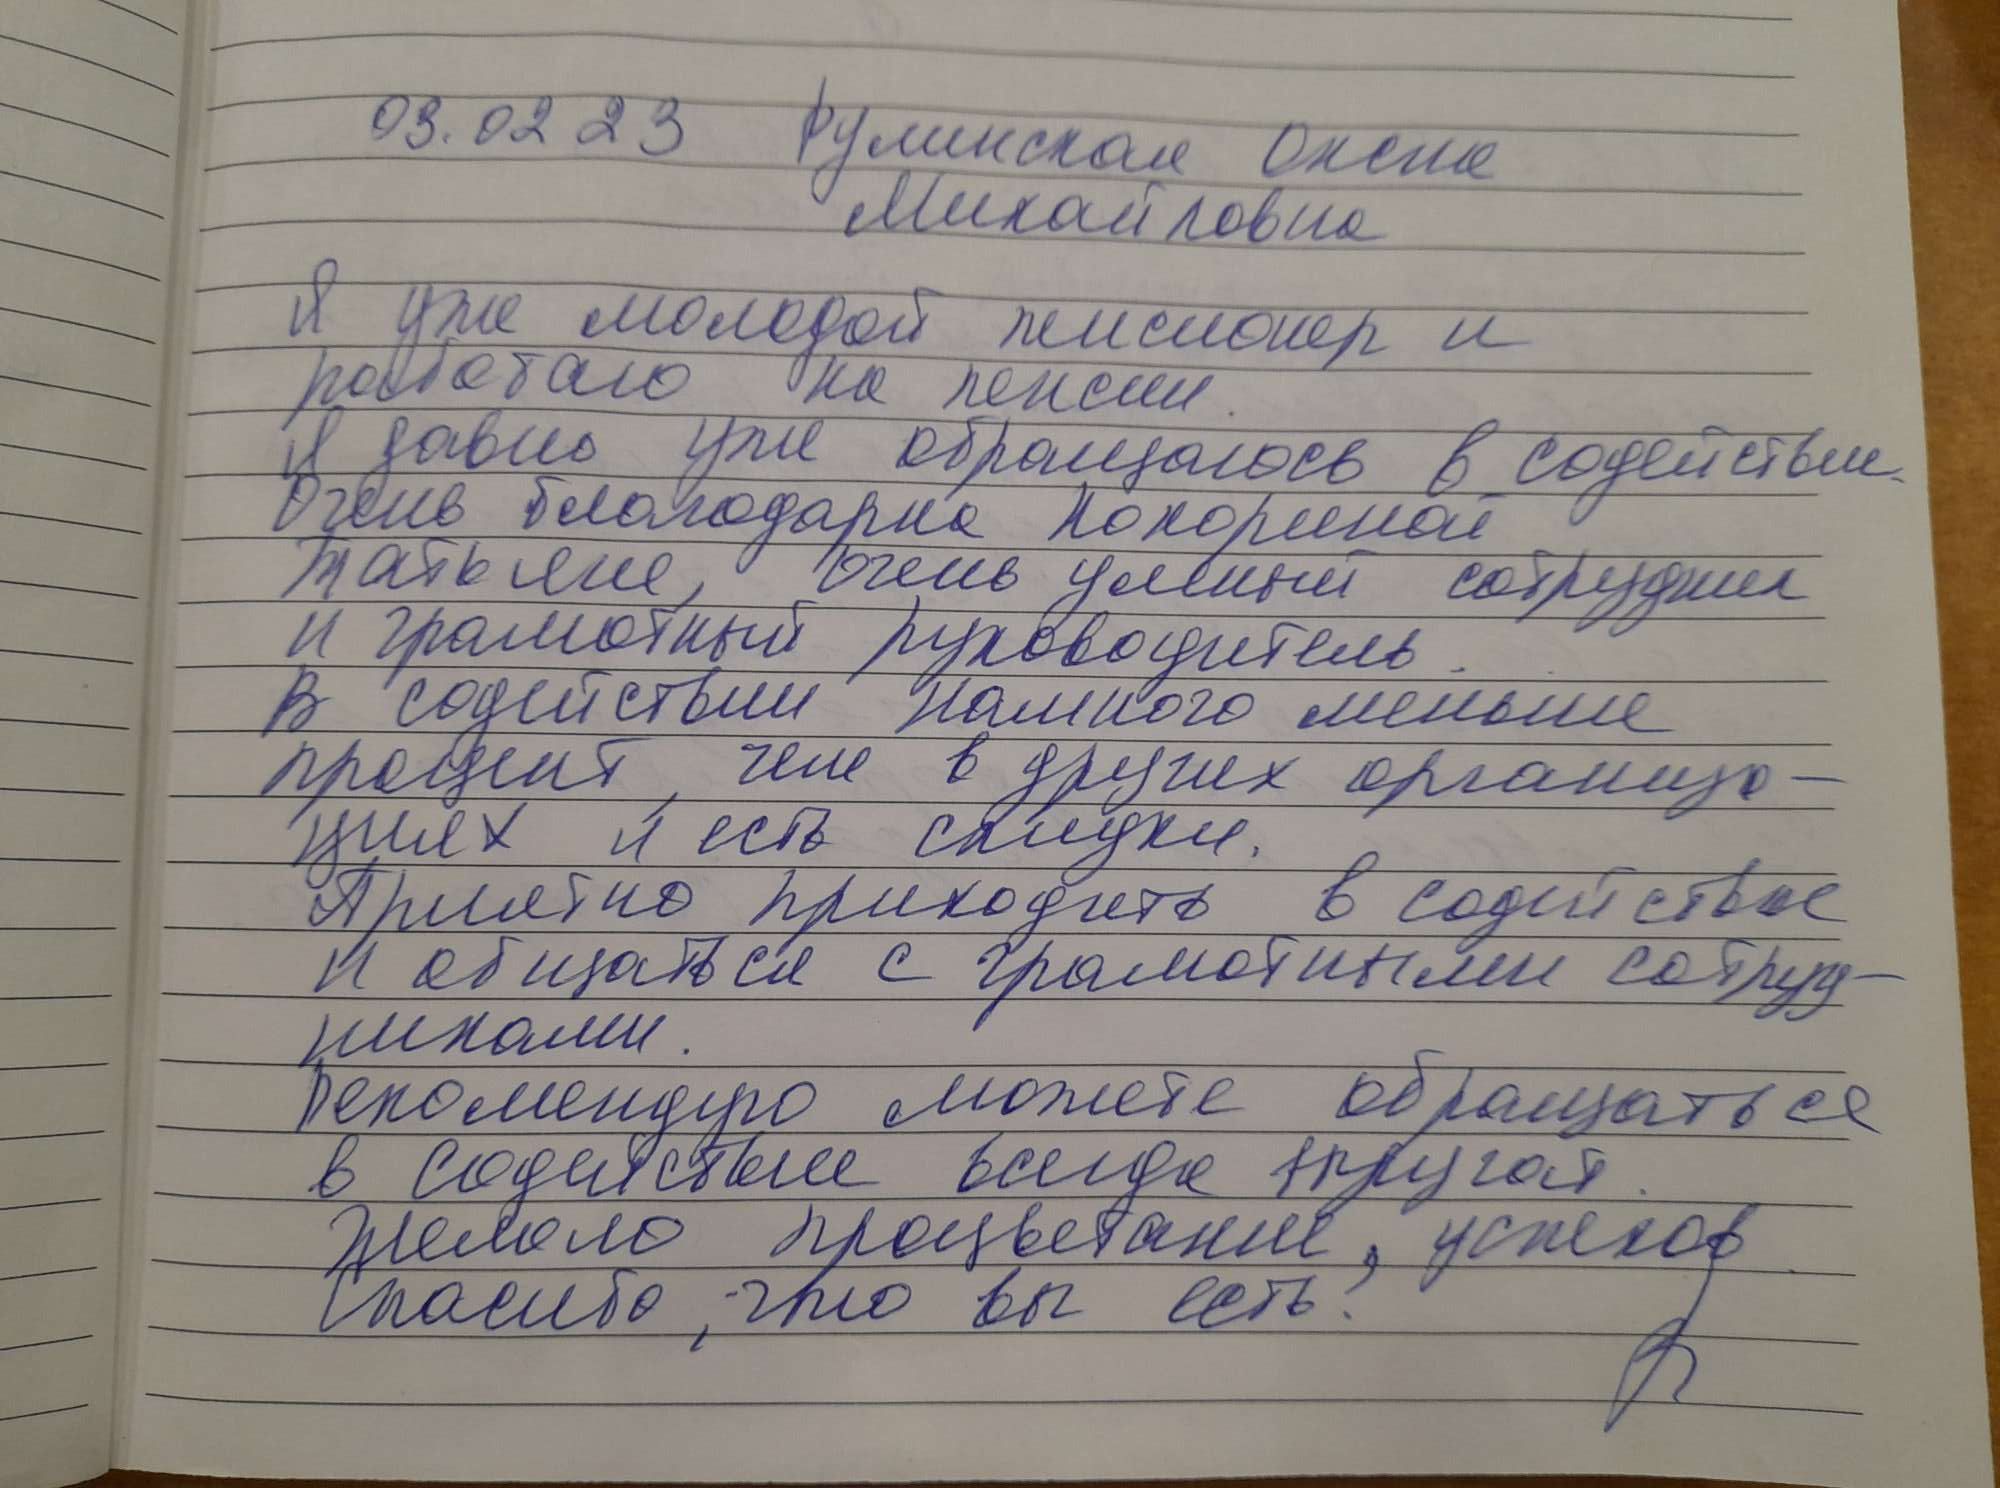 03.02 23 Руминская Оксна
Михайловна
Я уже молодой пенсионер и
работаю на пенсии.
Я давно уже обращаюсь в содействии.
Очень благодарна Кокориной
Татьяне, очень умный сотрудник
и грамотный руководитель.
В содействии намного меньше
процент, чем в других организа-
циях и есть скидки.
Приятно приходить в содействие
и общаться с грамотными сотруд-
никами.
Рекомендую можете обращаться
в содействие всегда
Желаю процветание, успехов
Спасибо, что вы есть!